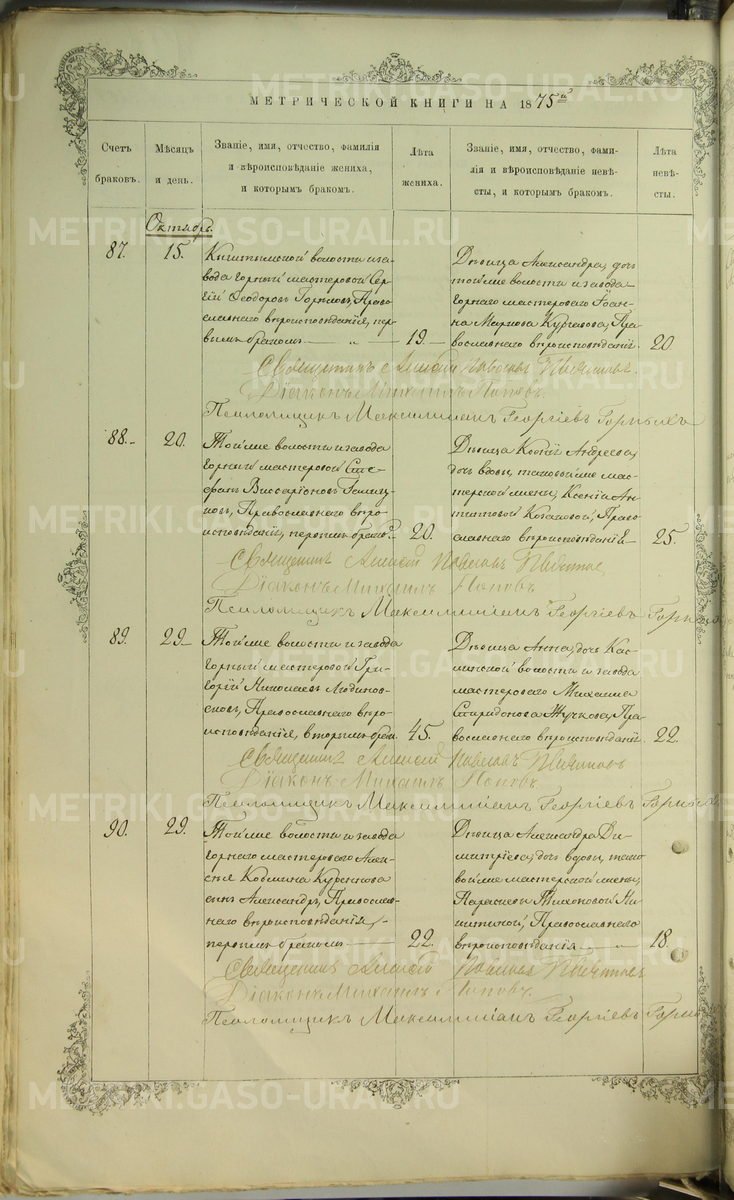 МЕТРИЧЕСКОЙ КНИГИ НА 1875й
Счетъ браковъ.
Мѣсяцъ и день.
Званіе, имя, отчество, фамилія
и вѣроисповѣданіе жениха,
и которымъ бракомъ.
Лѣта жениха.
Званіе, имя, отчество, фами-
лія и вѣроисповѣданіе невѣ-
сты, и которымъ бракомъ.
Лѣта невѣ-
сты.
Октябрь.
87.
15.
Кыштымской волости и за-
вода горный мастеровой Сер-
гій Ѳеодоровъ Право-
славнаго вѣроисповѣданія, пер-
вымъ бракомъ
19
Дѣвица Александра, дочь
той же волости и завода
горнаго мастероваго Іоан-
на Маркова Пра-
вославнаго вѣроисповѣданія.
20
Священникъ Алексій
Діаконъ Михаилъ Поповъ.
Псаломщикъ Максимиліанъ Георгіевъ
88.
20.
Той же волости и завода
горный мастеровой Сте-
фанъ Виссаріоновъ
Православнаго вѣро-
исповѣданія, первымъ брако.
20.
Дѣвица Андреева,
дочь вдовы таковой же мас-
терской жены, Ксеніи Ан-
типовой Казаковой, Право-
славнаго вѣроисповѣданія
25.
Священникъ Алексій
Діаконъ Михаилъ Поповъ
Псаломщикъ Максимиліанъ Георгіевъ
89.
29
Той же волости и завода
горный мастеровой Гри-
горій Николаевъ
Православнаго вѣро-
исповѣданія, вторымъ брак.
45.
Дѣвица Анна, дочь Кас-
линской волости и завода
мастероваго Михаила
Спиридонова Жучкова, Пра-
вославнаго вѣроисповѣданія.
22.
Священникъ Алексій
Діаконъ Михаилъ Поповъ
Псаломщикъ Максимиліанъ Георгіевъ
90.
29.
Той же волости и завода
горнаго мастероваго Алек-
сѣя Козмина
сынъ Александръ, Православ-
наго вѣроисповѣданія,
первымъ бракомъ
22.
Дѣвица Александра Ди-
митріева, дочь вдовы, тако-
вой же мастерской жены,
Параскевы Тихоновой Ни-
китиной, Православнаго
вѣроисповѣданія
18.
Священникъ Алексій
Діаконъ Михаилъ Поповъ.
Псаломщикъ Максимиліанъ Георгіевъ
METRIKI.GASO-URAL.RU